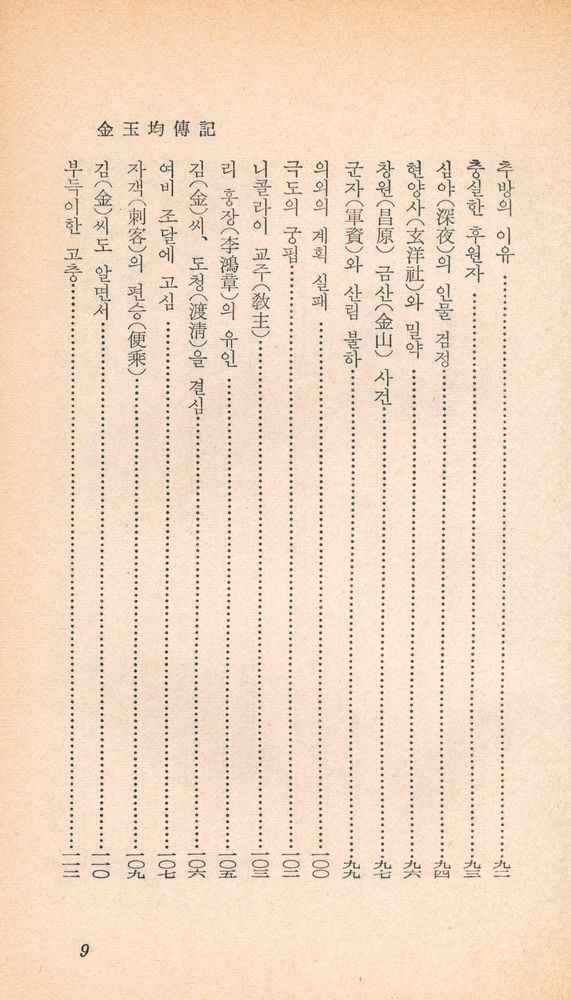 金玉均傳記
추방의 이유……九二
충실한 후원자……九三
심야(深夜)의 인물 검정……九四
현양사(玄洋社)와 밀약……九六
창원(昌原) 금산(金山) 사건……九七
군자(軍資)와 산림 불하……九九
의외의 계획 실패……一〇〇
극도의 궁핍……一〇二
니콜라이 교주(敎主)……一〇三
리 홍장(李鴻章)의 유인……一〇五
김(金)씨、도청(渡淸)을 결심……一〇六
여비 조달에 고심……一〇七
자객(刺客)의 편승(便乘)……一〇九
김(金)씨도 알면서……一一〇
부득이한 고충……一一二
9